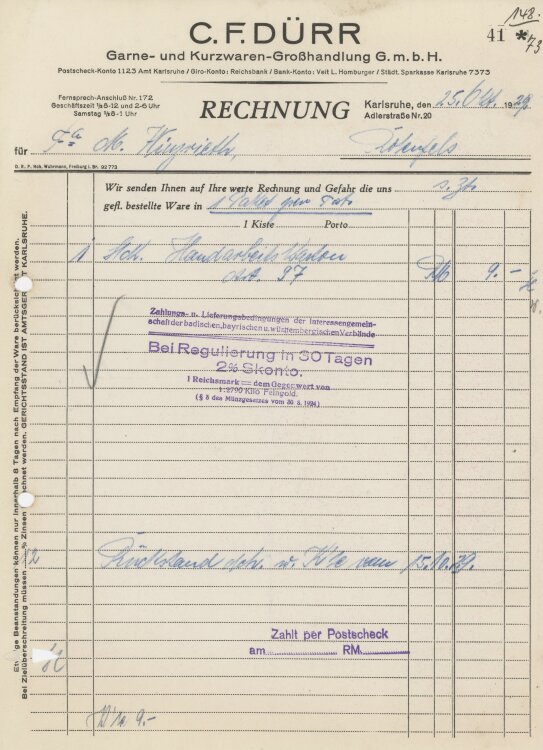 148.
41 *73
C. F. DÜRR
Garne- und Kurzwaren-Großhandlung G. m. b. H.
Postscheck-Konto 1123 Amt Karlsruhe / Giro-Konto: Reichsbank / Bank-Konto: Veit L. Homburger / Städt. Sparkasse Karlsruhe 7373
Fernsprech-Anschluß Nr. 172
Geschäftszeit ½8-12 und 2-6 Uhr
Samstag ½8-1 Uhr
RECHNUNG
Karlsruhe, den 25. Okt. 1929
Adlerstraße Nr. 20
für Fa M.
Rotenfels
D. R. P. Nch. Wuhrmann, Freiburg i. Br. 92 773
Wir senden Ihnen auf Ihre werte Rechnung und Gefahr die uns s. Zt.
gefl. bestellte Ware in 1 Paket per
1 Kiste Porto
1 Stck. Handarbeits
Art. 97 RM 9.-
Zahlungs- u. Lieferungsbedingungen der Interessengemein-
schaft der badischen, bayrischen u. württembergischen Verbände
Bei Regulierung in 30 Tagen
2% Skonto.
1 Reichsmark = dem Gegenwert von
1:2790 Kilo Feingold.
(§ 3 des Münzgesetzes vom 30. 8. 1924)
Rückstand vom 15.10.29.
Zahlt per Postscheck
am RM.
9.-
ge Beanstandungen können nur innerhalb 8 Tagen nach Empfang der Ware berücksich t werden.
Bei Zielüberschreitung müssen % Zinsen chnet werden. GERICHTSSTAND IST AMTSGER T KARLSRUHE.